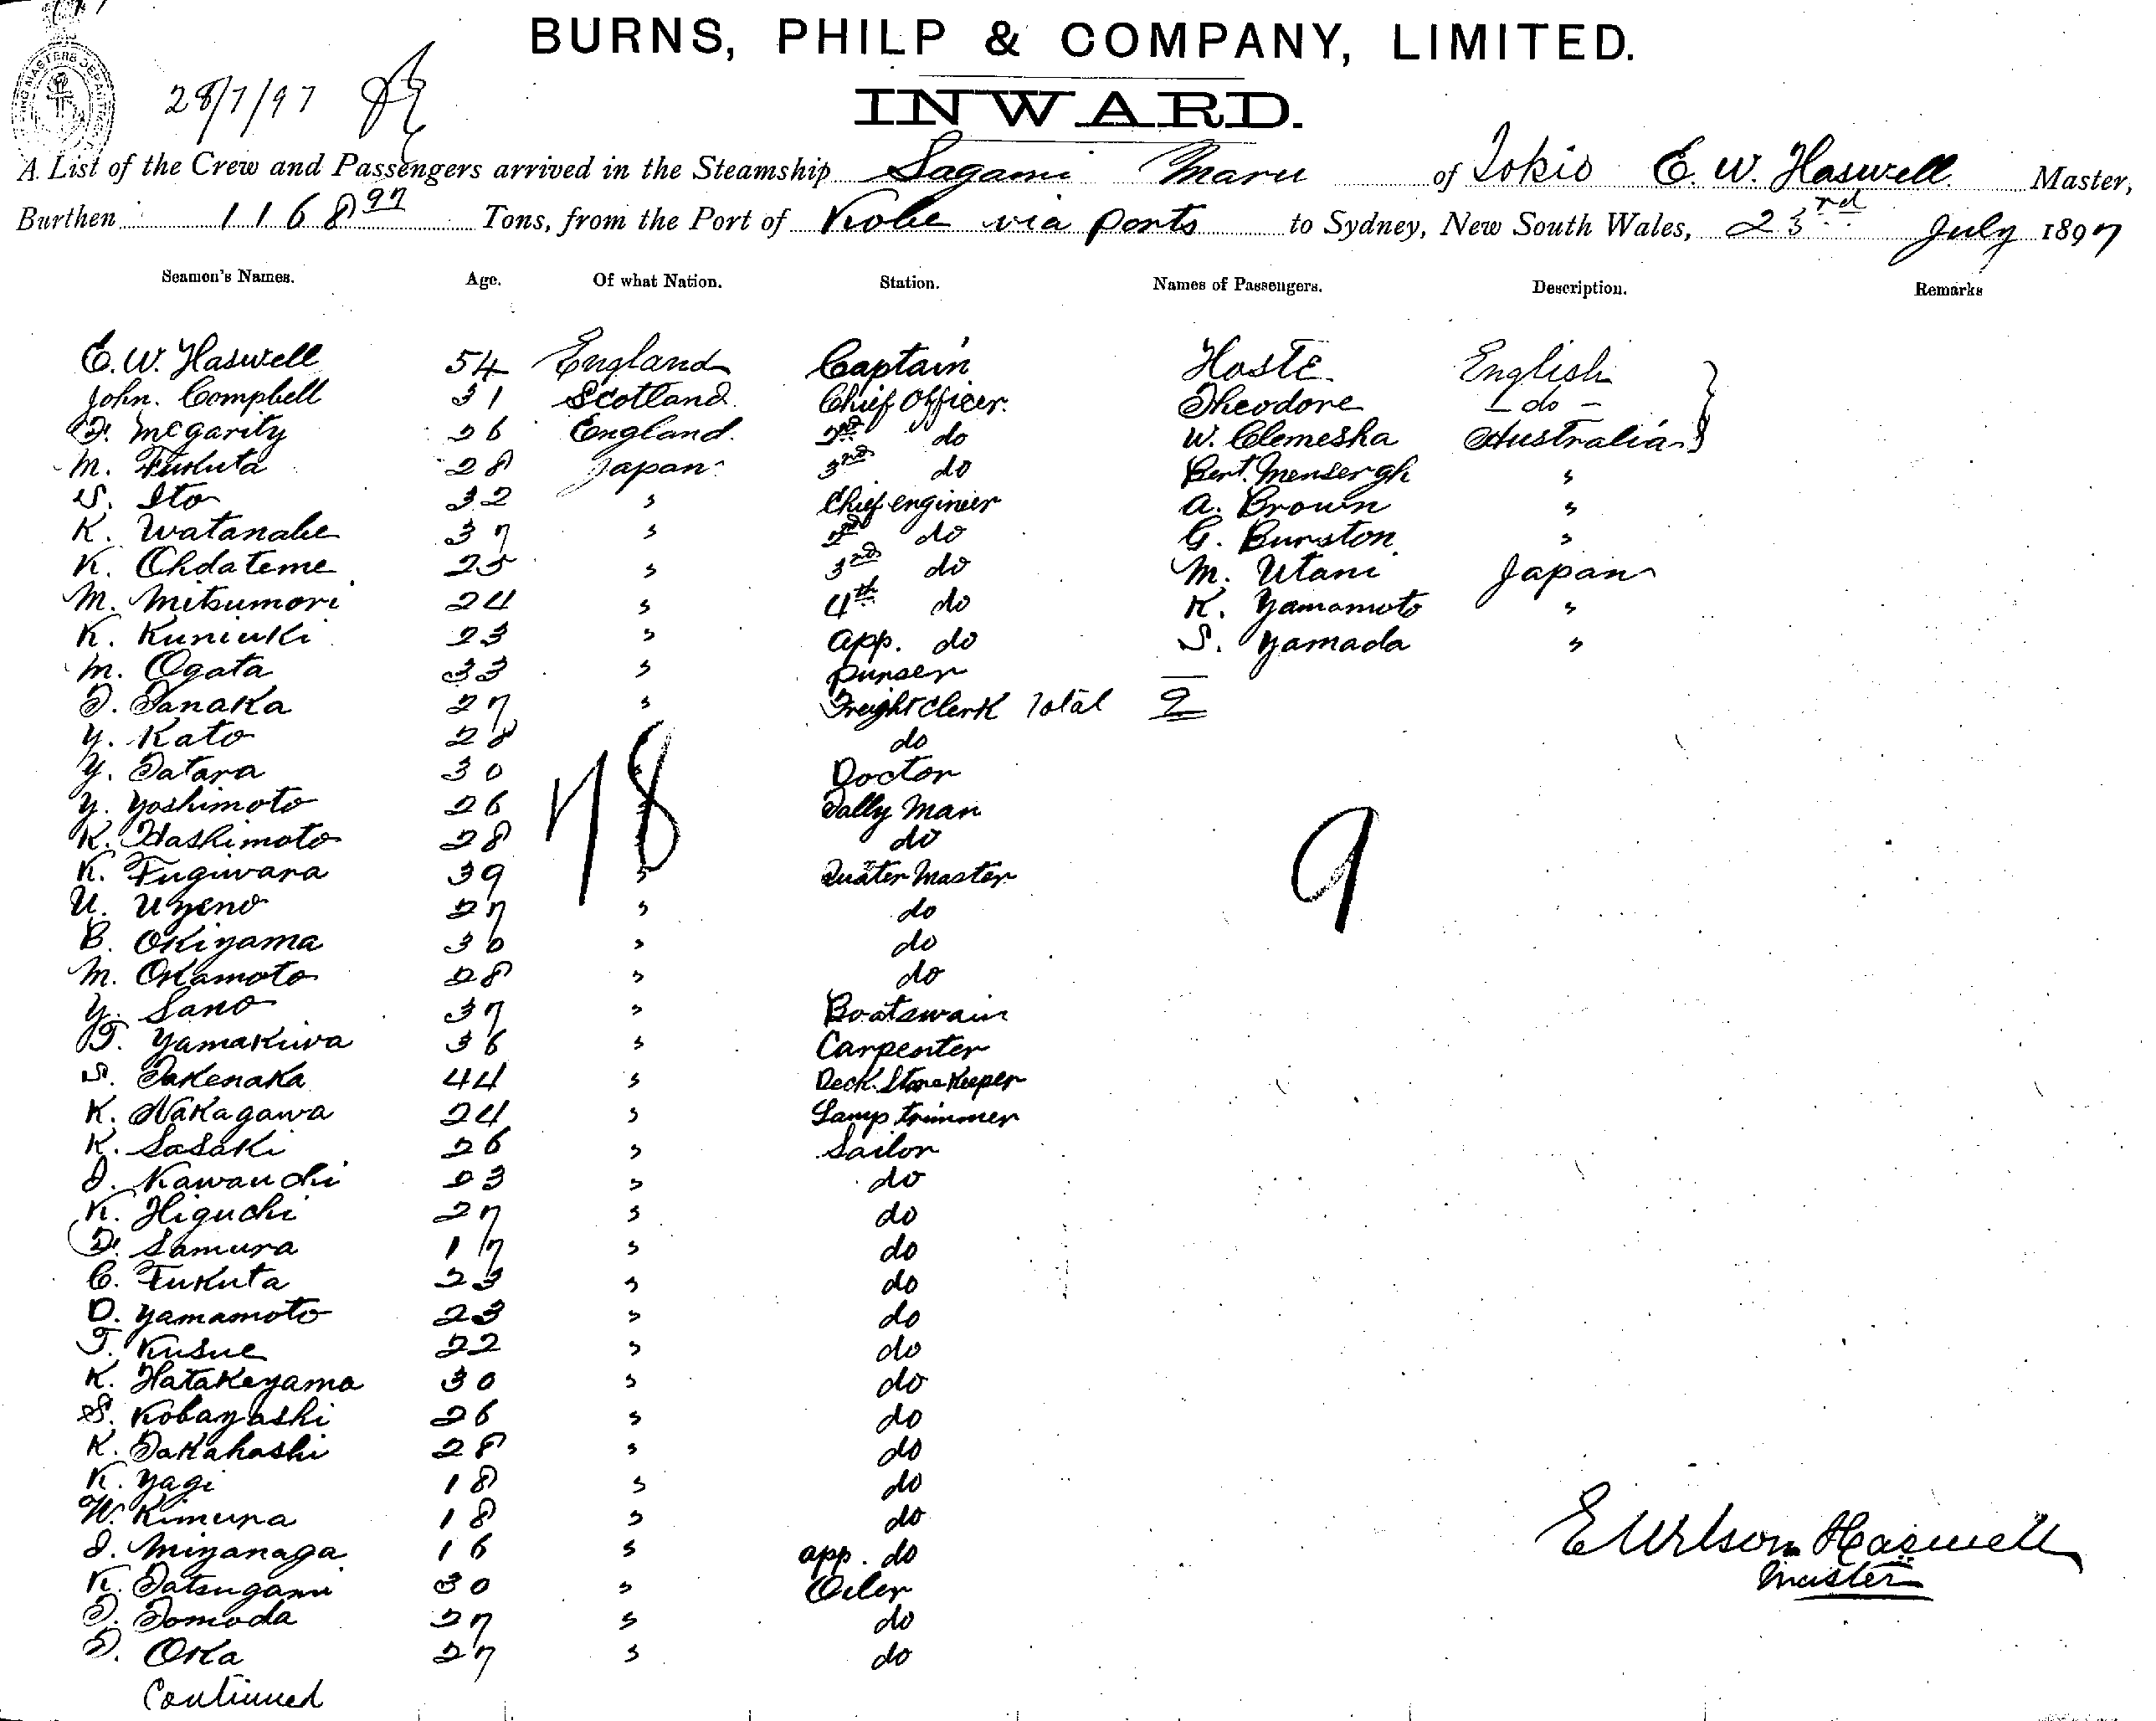 BURNS, PHILP & COMPANY, LIMITED.
28/7/97
INWARD.
A List of the Crew and Passengers arrived in the Steamship Sagami Maru of Tokio E. W. Haswell Master,
Burthen 1168 97 Tons, from the Port of Kobe via ports to Sydney, New South Wales, 23rd July 1897
Seamen's Names. Age. Of what Nation. Station. Names of Passengers. Description. Remarks
E. W. Haswell 54 England Captain Hoste English
John. Campbell 31 Scotland Chief Officer. Theodore - do -
McGarity 26 England. 2nd do W. Clemesha Australia
M. Fukuta 28 Japan 3rd do Bert. Mensergh "
S. Ito 32 " Chief engineer A. Brown "
K. Watanabe 37 " 2nd do G. Burston "
K. Ohdateme 25 " 3rd do M. Utani Japan
M. Mitsumori 24 " 4th do K. Yamamoto "
K. Kuniuki 23 " app. do S. Yamada "
M. Ogata 33 " purser
T. Tanaka 27 " Freight Clerk Total 9
Y. Kato 28 do
Y. Tatara 30 " Doctor
Y. Yoshimoto 26 " Tally Man
78
K. Hashimoto 28 " do
9
K. Fugiwara 39 " Quater Master
U. Uyeno 27 " do
B. Okiyama 30 " do
M. Okamoto 28 " do
Y. Sano 37 " Boatswain
T. Yamakuva 36 " Carpenter
S. Takenaka 44 " Deck. Store Keeper
K. Nakagawa 24 " Lamp trimmer
K. Sasaki 26 " Sailor
I. Kawauchi 23 " do
K. Higuchi 27 " do
Samura 17 " do
C. Fukuta 23 " do
D. Yamamoto 23 " do
T. Kusue 22 " do
K. Hatakeyama 30 " do
S. Kobayashi 26 " do
K. Takahashi 28 " do
K. Yagi 18 " do
W. Kimura 18 " do
I. Miyanaga 16 " app. do
K. Tatsugami 30 " Oiler
T. Tomoda 27 " do
T. Oka 27 " do
Continued
E Wilson Haswell
Master